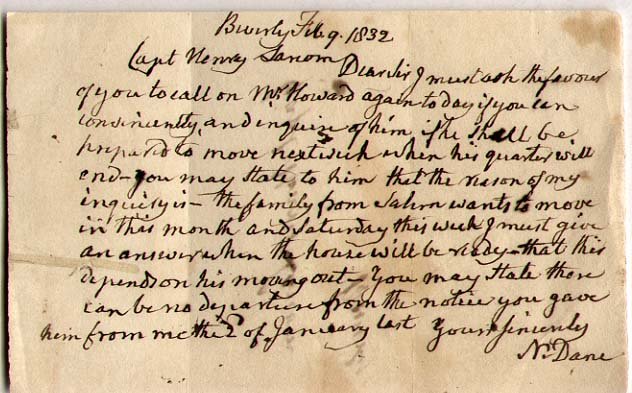 Beverly Feb 9. 1832
Capt Henry Larcom Dear sir I must ask the favour
of you to call on Mr. Howard again to day if you can
conveniently, and inquire of him if he shall be
prepared to move next week when his quarter will
end – you may state to him that the reason of my
inquiry is – the family from Salem wants to move
in this month and Saturday this week I must give
an answer when the house will be ready – that this
depends on his moving out – You may state there
can be no departure from the notice you gave
him from me the 2d of January last Yours sincerely
N. Dane